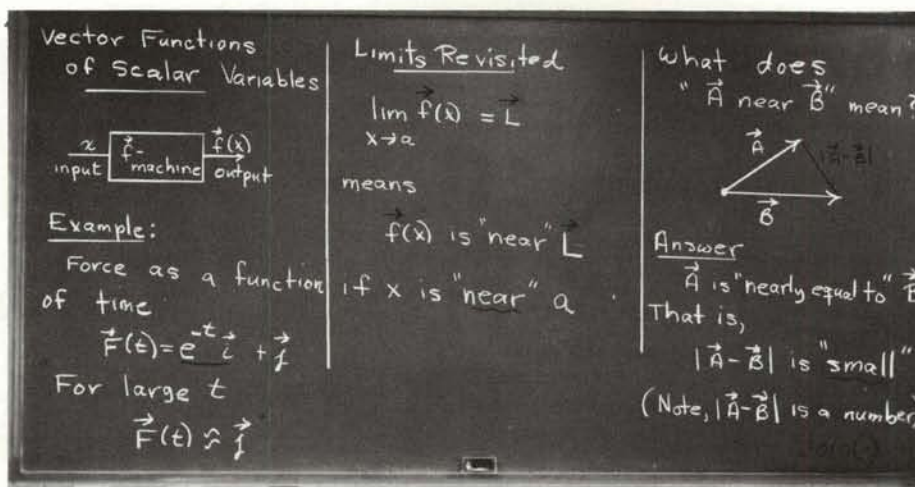 Vector Functions
of Scalar Variables
x
input
f⃗-
machine
f⃗(x)
output
Example:
Force as a function
of time
F⃗(t) = e^-t i⃗ + j⃗
For large t
F⃗(t) ≈ j⃗
Limits Revisited
lim f⃗(x) = L⃗
x→a
means
f⃗(x) is "near" L⃗
if x is "near" a
What does
"A⃗ near B⃗" mean?
A⃗
|A⃗-B⃗|
B⃗
Answer
A⃗ is "nearly equal to" B⃗
That is,
|A⃗-B⃗| is "small"
(Note, |A⃗-B⃗| is a number)